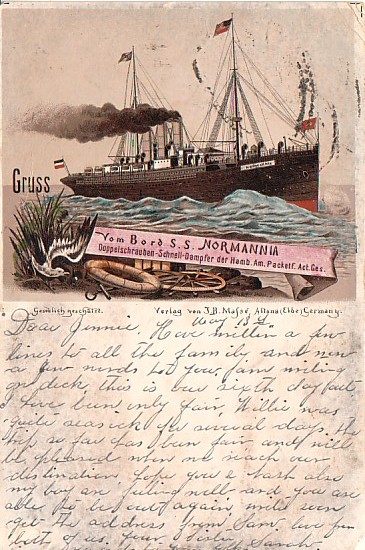 Gruss
Vom Bord S.S. NORMANNIA
Doppelschrauben-Schnell-Dampfer der Hamb. Am. Packetf. Act. Ges.
Gesetzlich geschützt.
Verlag von J.B. Massé, Altona (Elbe) Germany.
May 18
Dear Jennie, Have written a few
lines to all the family, and now
a few words to you, I am writing
on deck this is our sixth day out
I have been only fair, Willie was
quite seasick for several days. The
trip so far has been fair and will
be pleased when we reach our
destination. hope you &
my boy are feeling well and you are
able to be out again, will soon
get the address from Sam, love from
both of us. Your Sister Sarah